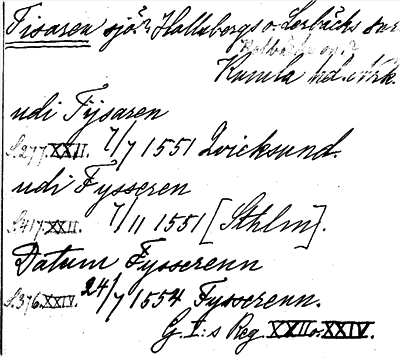 Tisaren sjö. Hallsbergs o. Lerbäcks snr
Kumla hd. Nrk.
udi Tÿsaren
S. 277. XXII. 7/7 1551 Qvicksund.
udi Fysseren
S. 417. XXII. 7/11 1551 [Sthlm].
Datum Fysserenn
S. 376. XXIV. 24/7 1554 Fysserenn.
G. I:s Reg XXII o. XXIV.